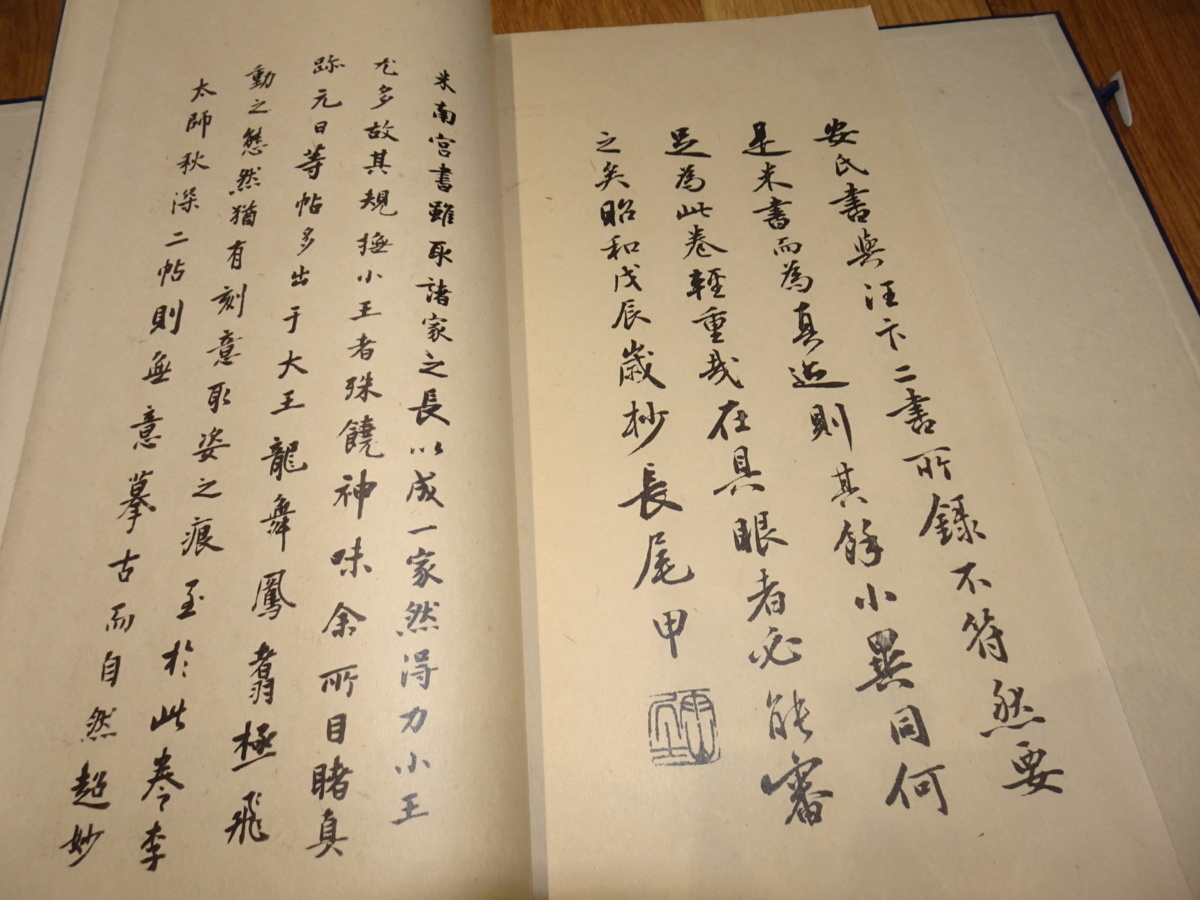 安氏書與汪卞二書所錄不符然要
是米書而為真迹則其餘小異同何
足為此卷輕重哉在具眼者必能審
之矣昭和戊辰歲杪長尾甲
米南宮書雖取諸家之長以成一家然得力小王
尤多故其規橅小王者殊饒神味余所目睹真
跡元日等帖多出于大王龍舞鳳翥極飛
動之態然猶有刻意取姿之痕至於此卷李
太師秋深二帖則無意摹古而自然超妙